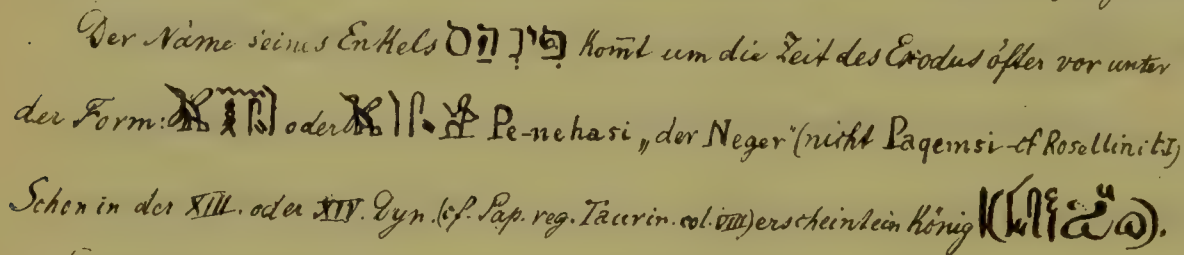 Der Name seines Enkels פִּינְהָס kom̄t um die Zeit des Exodus öfter vor unter
der Form: oder Pe-nehasi „der Neger" (nicht Paqemsi - cf Rosellini t.I)
Schon in der XIII. oder XIV. Dyn. (cf. Pap. reg. Taurin. col. VIII) erscheint ein König